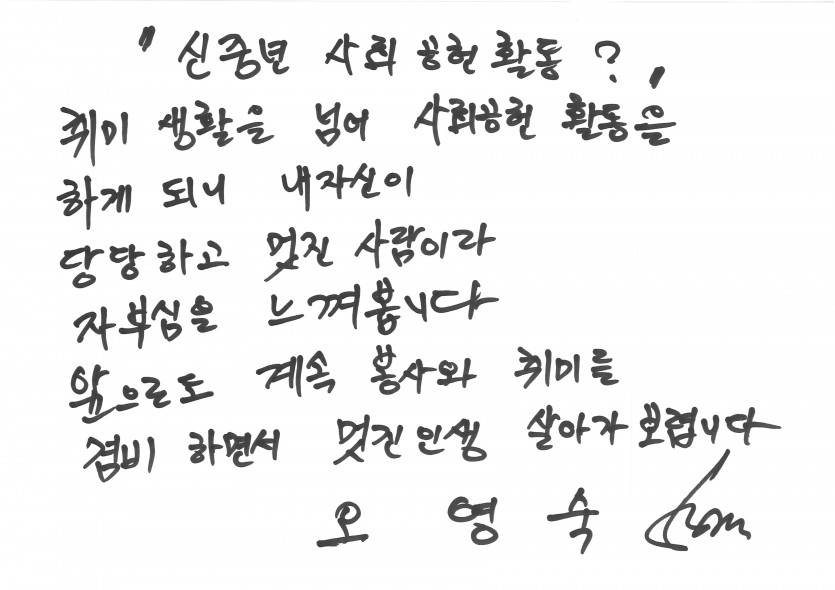 " 신중년 사회 공헌 활동 ? "
취미 생활을 넘어 사회공헌 활동을
하게 되니 내자신이
당당하고 멋진 사람이라
자부심을 느껴봅니다
앞으로도 계속 봉사와 취미를
겸비 하면서 멋진 인생 살아가 보렵니다
오 영 숙